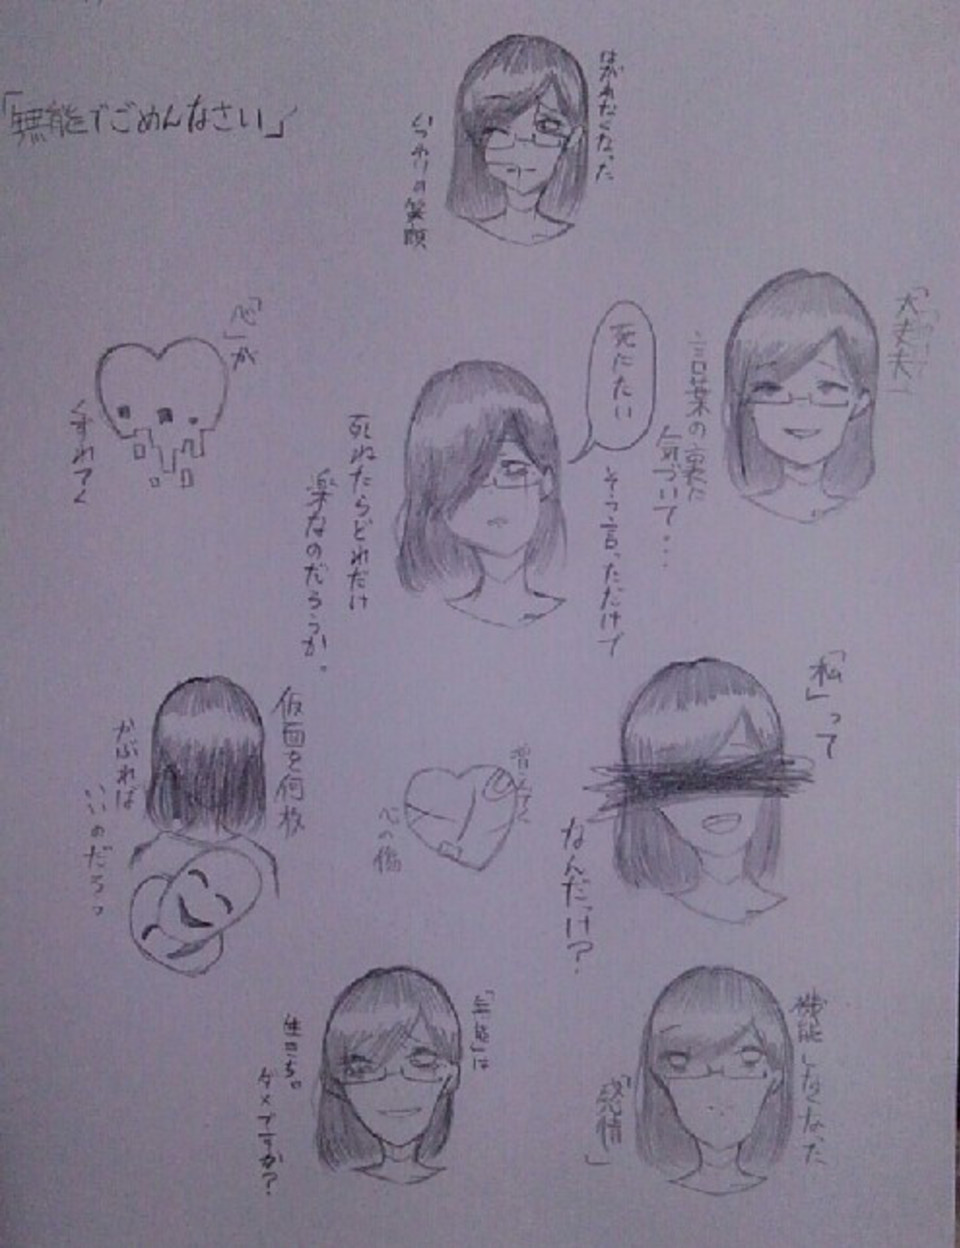 「無能でごめんなさい」
はがれなくなった
いつわりの笑顔
「大丈夫」
言葉の裏に
気づいて・・・
死にたい
そう言っただけで
死ねたらどれだけ
楽なのだろうか。
「心」が
くずれてく
「私」って
なんだっけ？
増えてく
心の傷
仮面を何枚
かぶれば
いいのだろう
機能しなくなった
「感情」
「無能」は
生きちゃ
ダメですか？